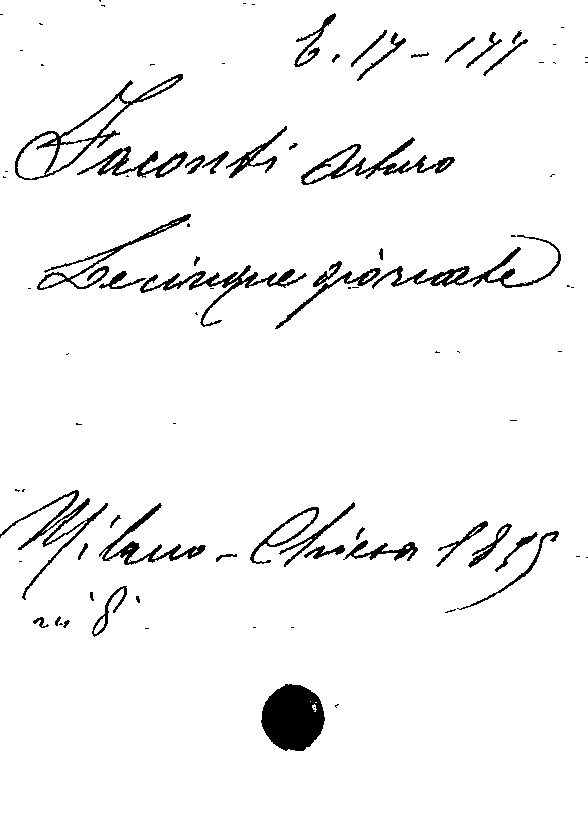 E. 14 - 144
Faconti Arturo
Le cinque giornate
Milano - Chiesa 1895
in 8°